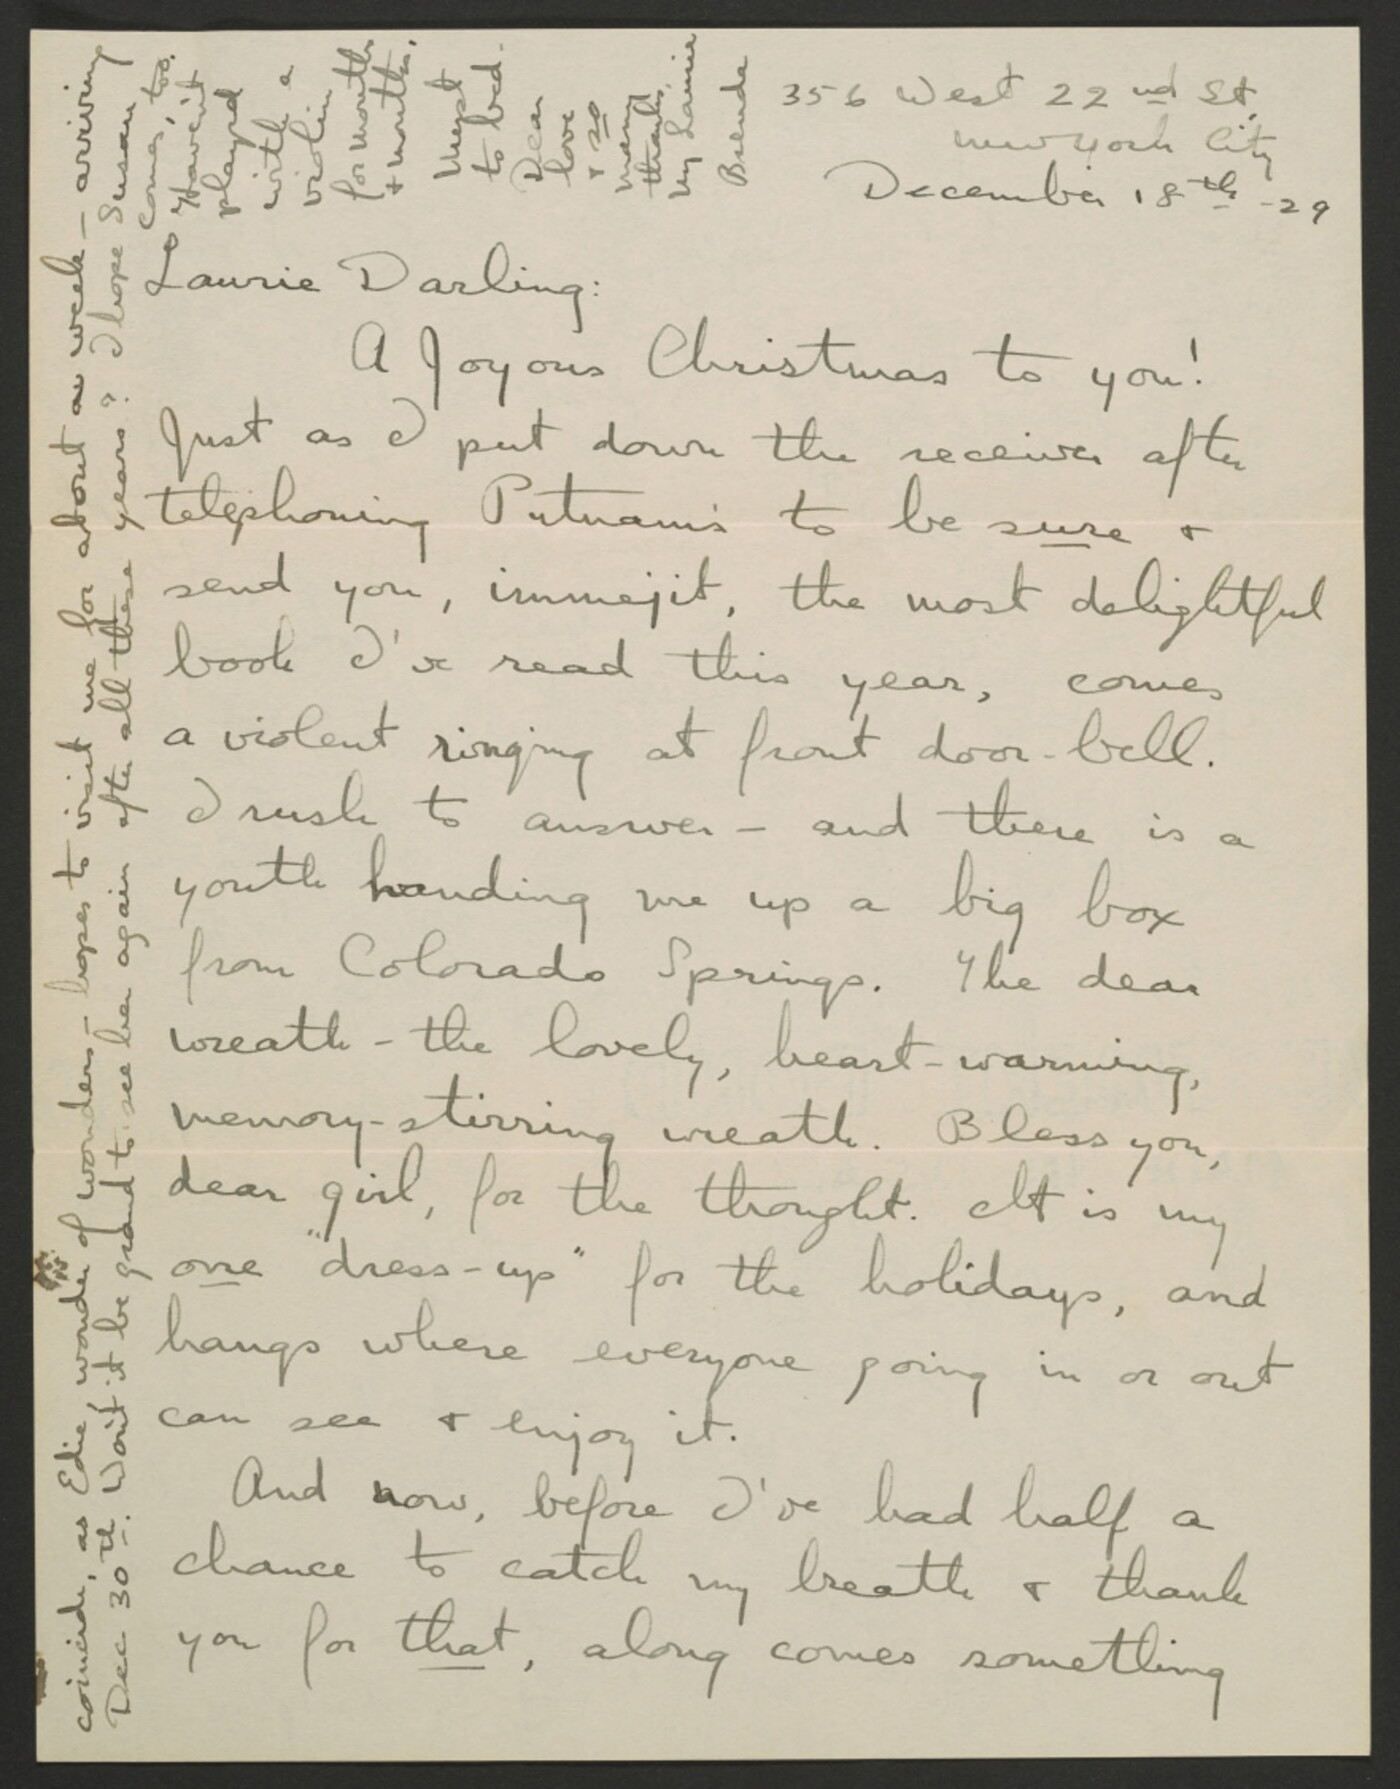 356 West 22nd St.
New York City
December 18th -29
Laurie Darling:
A Joyous Christmas to you!
Just as I put down the receiver after
telephoning Putnam's to be sure +
send you, immejit, the most delightful
book I've read this year, comes
a violent ringing at front door-bell.
I rush to answer - and there is a
youth handing me up a big box
from Colorado Springs. The dear
wreath - the lovely, heart-warming,
memory-stirring wreath. Bless you,
dear girl, for the thought. It is my
one "dress-up" for the holidays, and
hangs where everyone going in or out
can see + enjoy it.
And now, before I've had half a
chance to catch my breath + thank
you for that, along comes something
coincide, as Edie, wonder of wonders - hopes to visit me for about a week - arriving
Dec 30th. Won't it be grand to see her again after all these years? I hope Susan
comes, too.
Haven't
played
with a
violin
for months
+ months.
Must
to bed.
Dear
love
+ so
many
thanks,
my Laurie
Brenda